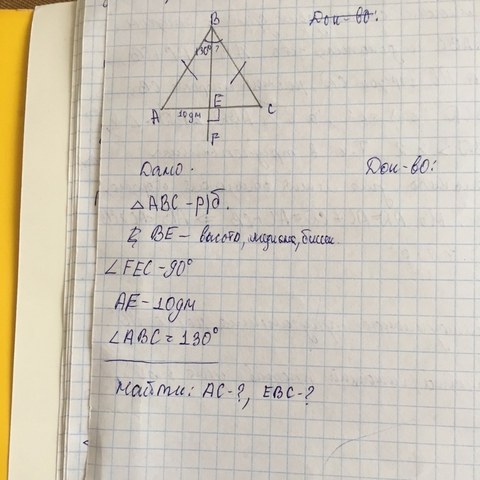 Док-во:
B
130° ?
A
E
C
10дм
F
Дано.
Док-во:
△ABC – р/б.
BE – высота, медиана, биссек.
∠FEC – 90°
AE – 10дм
∠ABC = 130°
Найти: AC-?, EBC-?